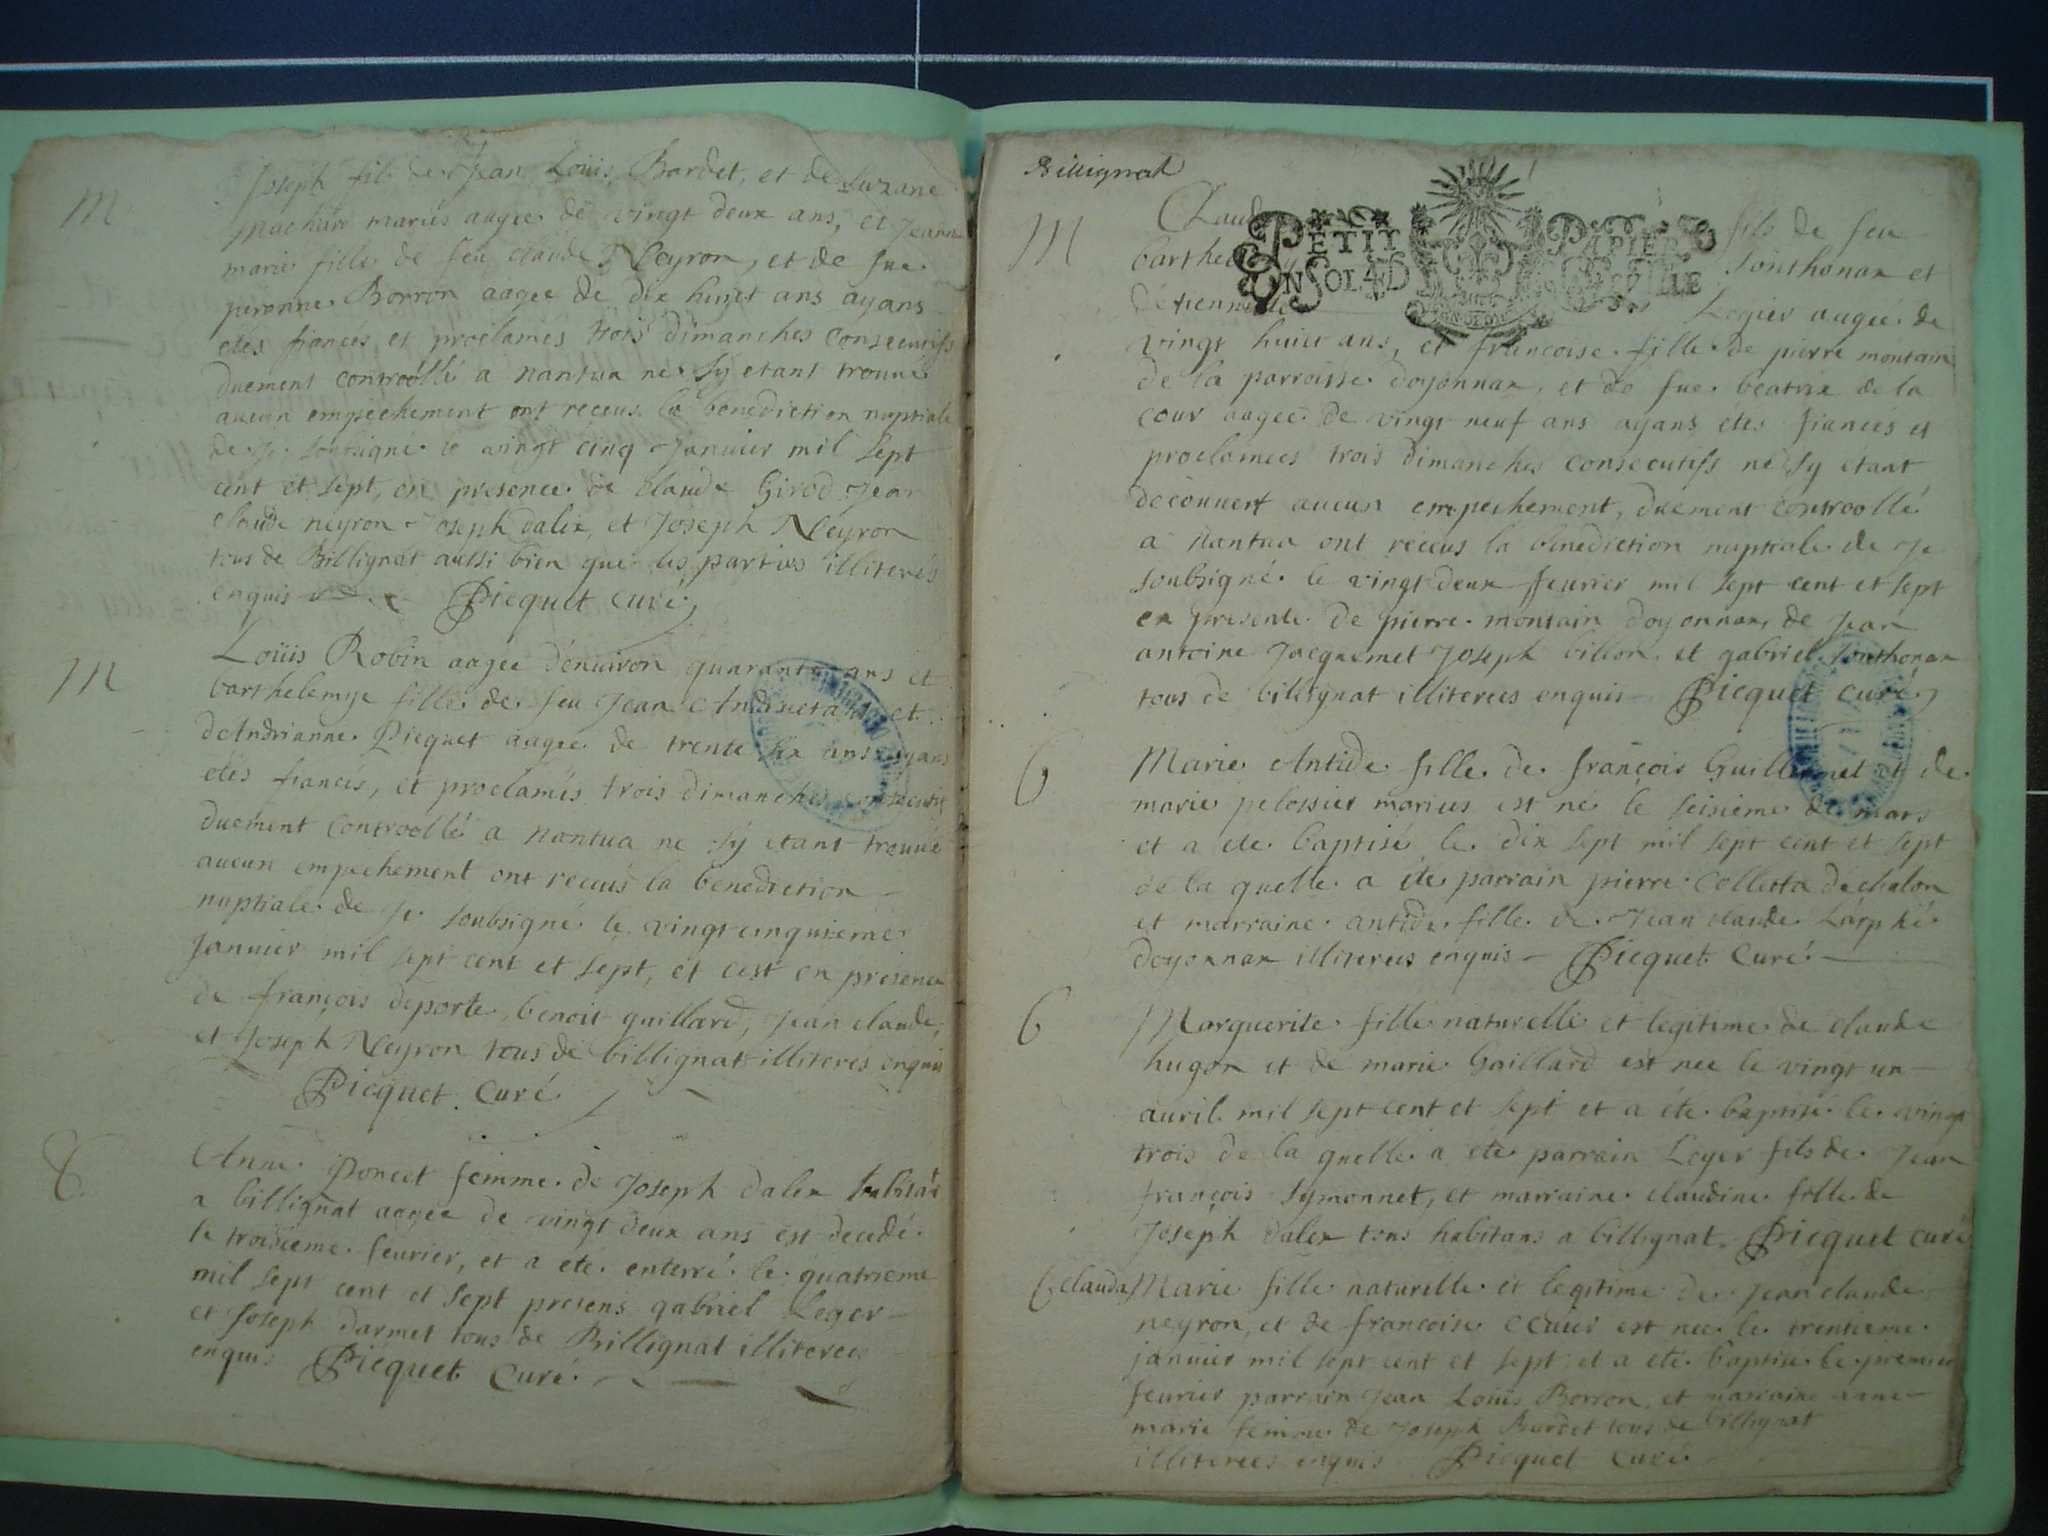 M
Joseph fils de Jean Loüis Bardet, et de Suzane
machard mariés aagée de vingt deux ans, et Jeanne
marie fille de feu claude Neyron, et de fue
peronne Borron aagee de dix huict ans ayans
etés fiancés et proclamés trois dimanches consecutifs
duement controollé a nantua ne sÿ etant trouué
aucun empechement ont receus la benediction nuptiale
de Je soubsigné le vingt cinq Januier mil sept
cent et sept, en presence de claude Girod Jean
claude neyron Joseph dalex, et Joseph Neyron
tous de Billignat aussi bien que les parties illiterés
enquis Picquet curé
M
Loüis Robin aagee d'enuiron quarante ans et
barthelemye fille de feu Jean et
d'Andrianne Picquet aagee de trente six ans ayans
etés fiancés, et proclamés trois dimanches consecutifs
duement controollé a nantua ne sÿ etant trouué
aucun empechement ont receus la benediction
nuptiale de Je soubsigné le vingt cinquieme
Januier mil sept cent et sept, et cest en presence
de françois deporte, benoit gaillard, Jean claude,
et Joseph Neyron tous de billignat illiterés enquis
Picquet Curé
Anne Poncet femme de Joseph dalex habitan
a billignat aagee de vingt deux ans est decedé
le troisieme feurier, et a eté enterré le quatrieme
mil sept cent et sept presens gabriel Leger
et Joseph darmet tous de Billignat illiterees
enquis Picquet Curé
Billignat
PETIT PAPIER
UN SOL 4 D LA FEUILLE
M
Claude fils de feu
barthelemy Sonthonax et
d'etiennette Legier aagée de
vingt huict ans, et francoise fille de pierre montain
de la parroisse doyonnax, et de fue beatrix de la
cour aagee de vingt neuf ans ayans etés fiancés et
proclamees trois dimanches consecutifs ne sy etant
decouuert aucun empechement, duement controollé
a Nantua ont receus la benediction nuptiale de Je
soubsigné le vingt deux feurier mil sept cent et sept
en presence de pierre montain doyonnax, de Jean
antoine Jacquemet Joseph billon et gabriel Sonthonax
tous de billignat illiterees enquis Picquet curé
b
Marie Antide fille de françois Guillermet et de
marie pelossier mariés est né le seisieme de mars
et a eté baptisé le dix sept mil sept cent et sept
de la quelle a été parrain pierre Colletta dechalon
et marraine antide fille de Jean claude Larphé
doyonnax illiterees enquis Picquet Curé
b
Marguerite fille naturelle et legitime de claude
hugon et de marie Gaillard est nee le vingt un
auril mil sept cent et sept et a été baptisé le vingt
trois de la quelle a eté parrain Leger fils de Jean
françois Symonnet, et marraine claudine fille de
Joseph dalex tous habitans a billignat Picquet curé
b clauda Marie fille naturelle et legitime de Jean claude
neyron, et de francoise est nee le trentieme
januier mil sept cent et sept et a eté baptisé le premier
feurier parrain Jean Loüis Borron et marraine anne
marie femme de Joseph Bardet tous de billignat
illiterees enquis Picquet Curé